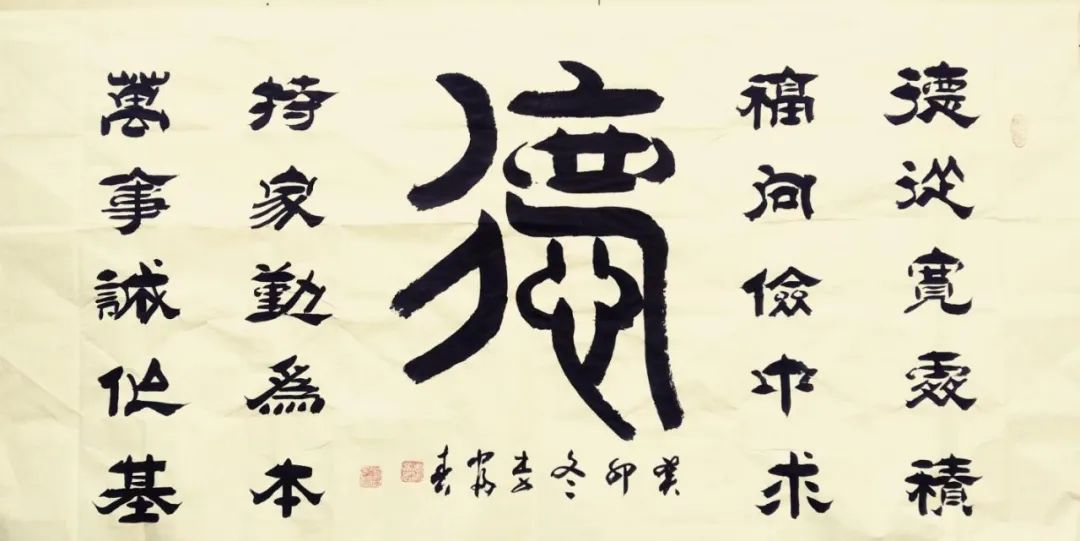 德從寬處積
福向儉中求
德
癸卯冬
持家勤爲本
萬事誠作基